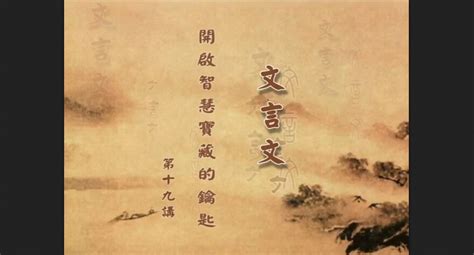 文言文
開啟智慧寶藏的鑰匙
第十九講